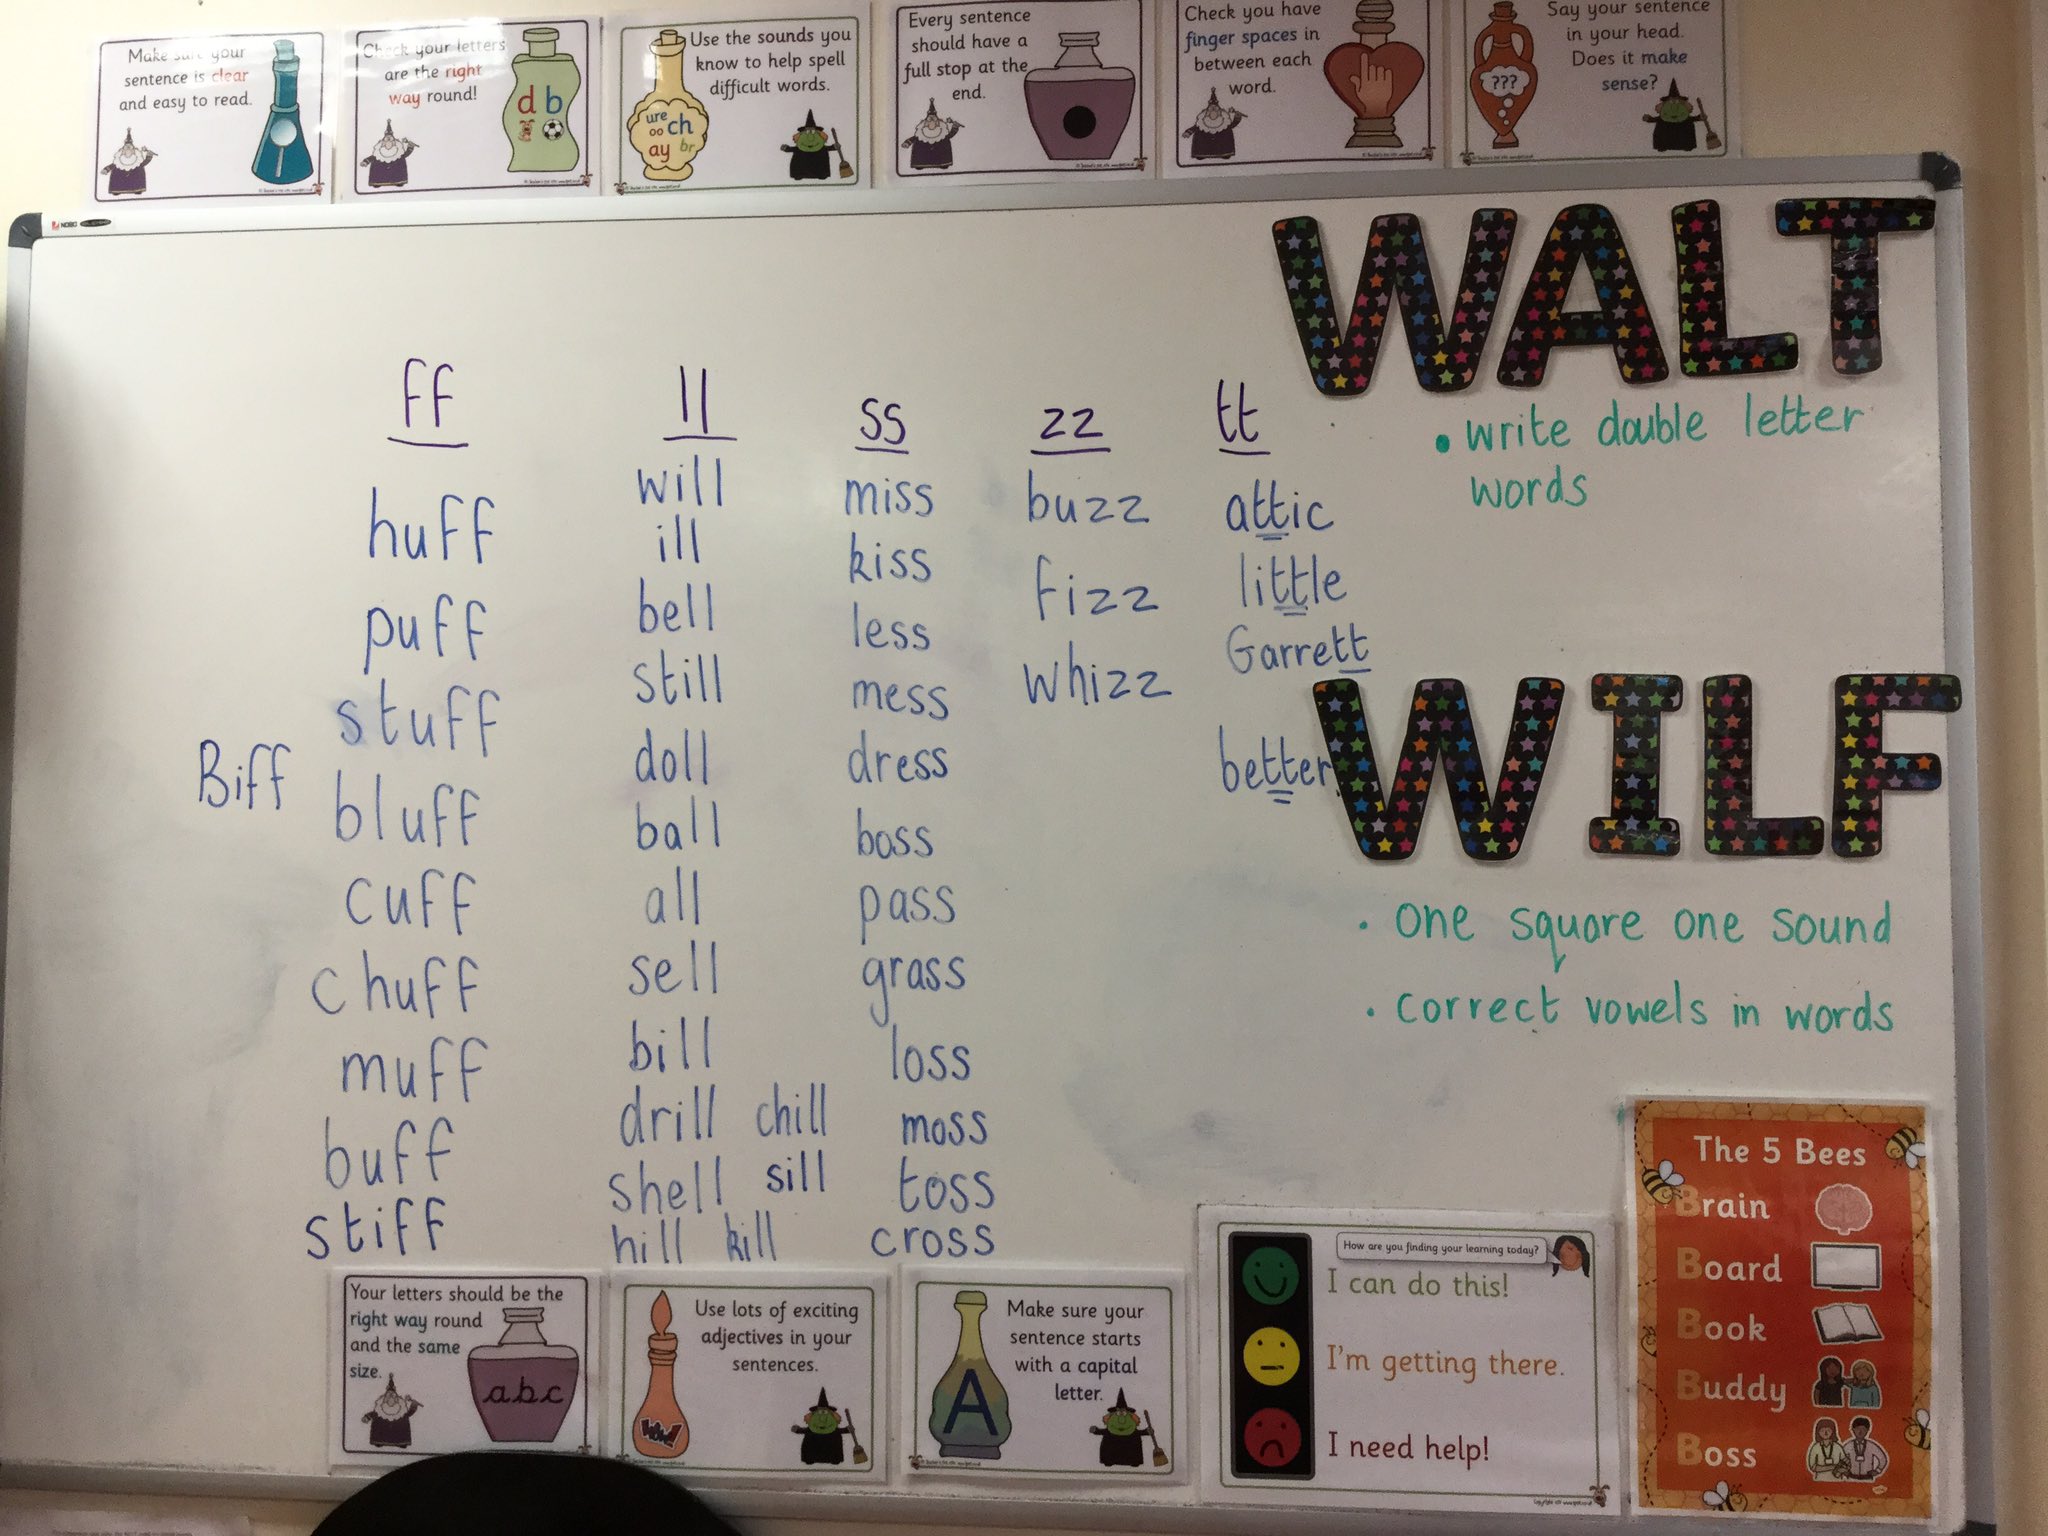 Make sure your
sentence is clear
and easy to read.
Check your letters
are the right
way round!
d b
Use the sounds you
know to help spell
difficult words.
ure
oo ch
ay br
Every sentence
should have a
full stop at the
end.
Check you have
finger spaces in
between each
word.
Say your sentence
in your head.
Does it make
sense?
???
NOBO
WALT
• write double letter
words
ff
huff
puff
stuff
Biff
bluff
cuff
chuff
muff
buff
stiff
ll
will
ill
bell
still
doll
ball
all
sell
bill
drill chill
shell sill
hill kill
ss
miss
kiss
less
mess
dress
boss
pass
grass
loss
moss
toss
cross
zz
buzz
fizz
whizz
tt
attic
little
Garrett
better
WILF
• one square one sound
• correct vowels in words
Your letters should be the
right way round
and the same
size.
abc
Use lots of exciting
adjectives in your
sentences.
WOW!
Make sure your
sentence starts
with a capital
letter.
A
How are you finding your learning today?
I can do this!
I'm getting there.
I need help!
The 5 Bees
Brain
Board
Book
Buddy
Boss